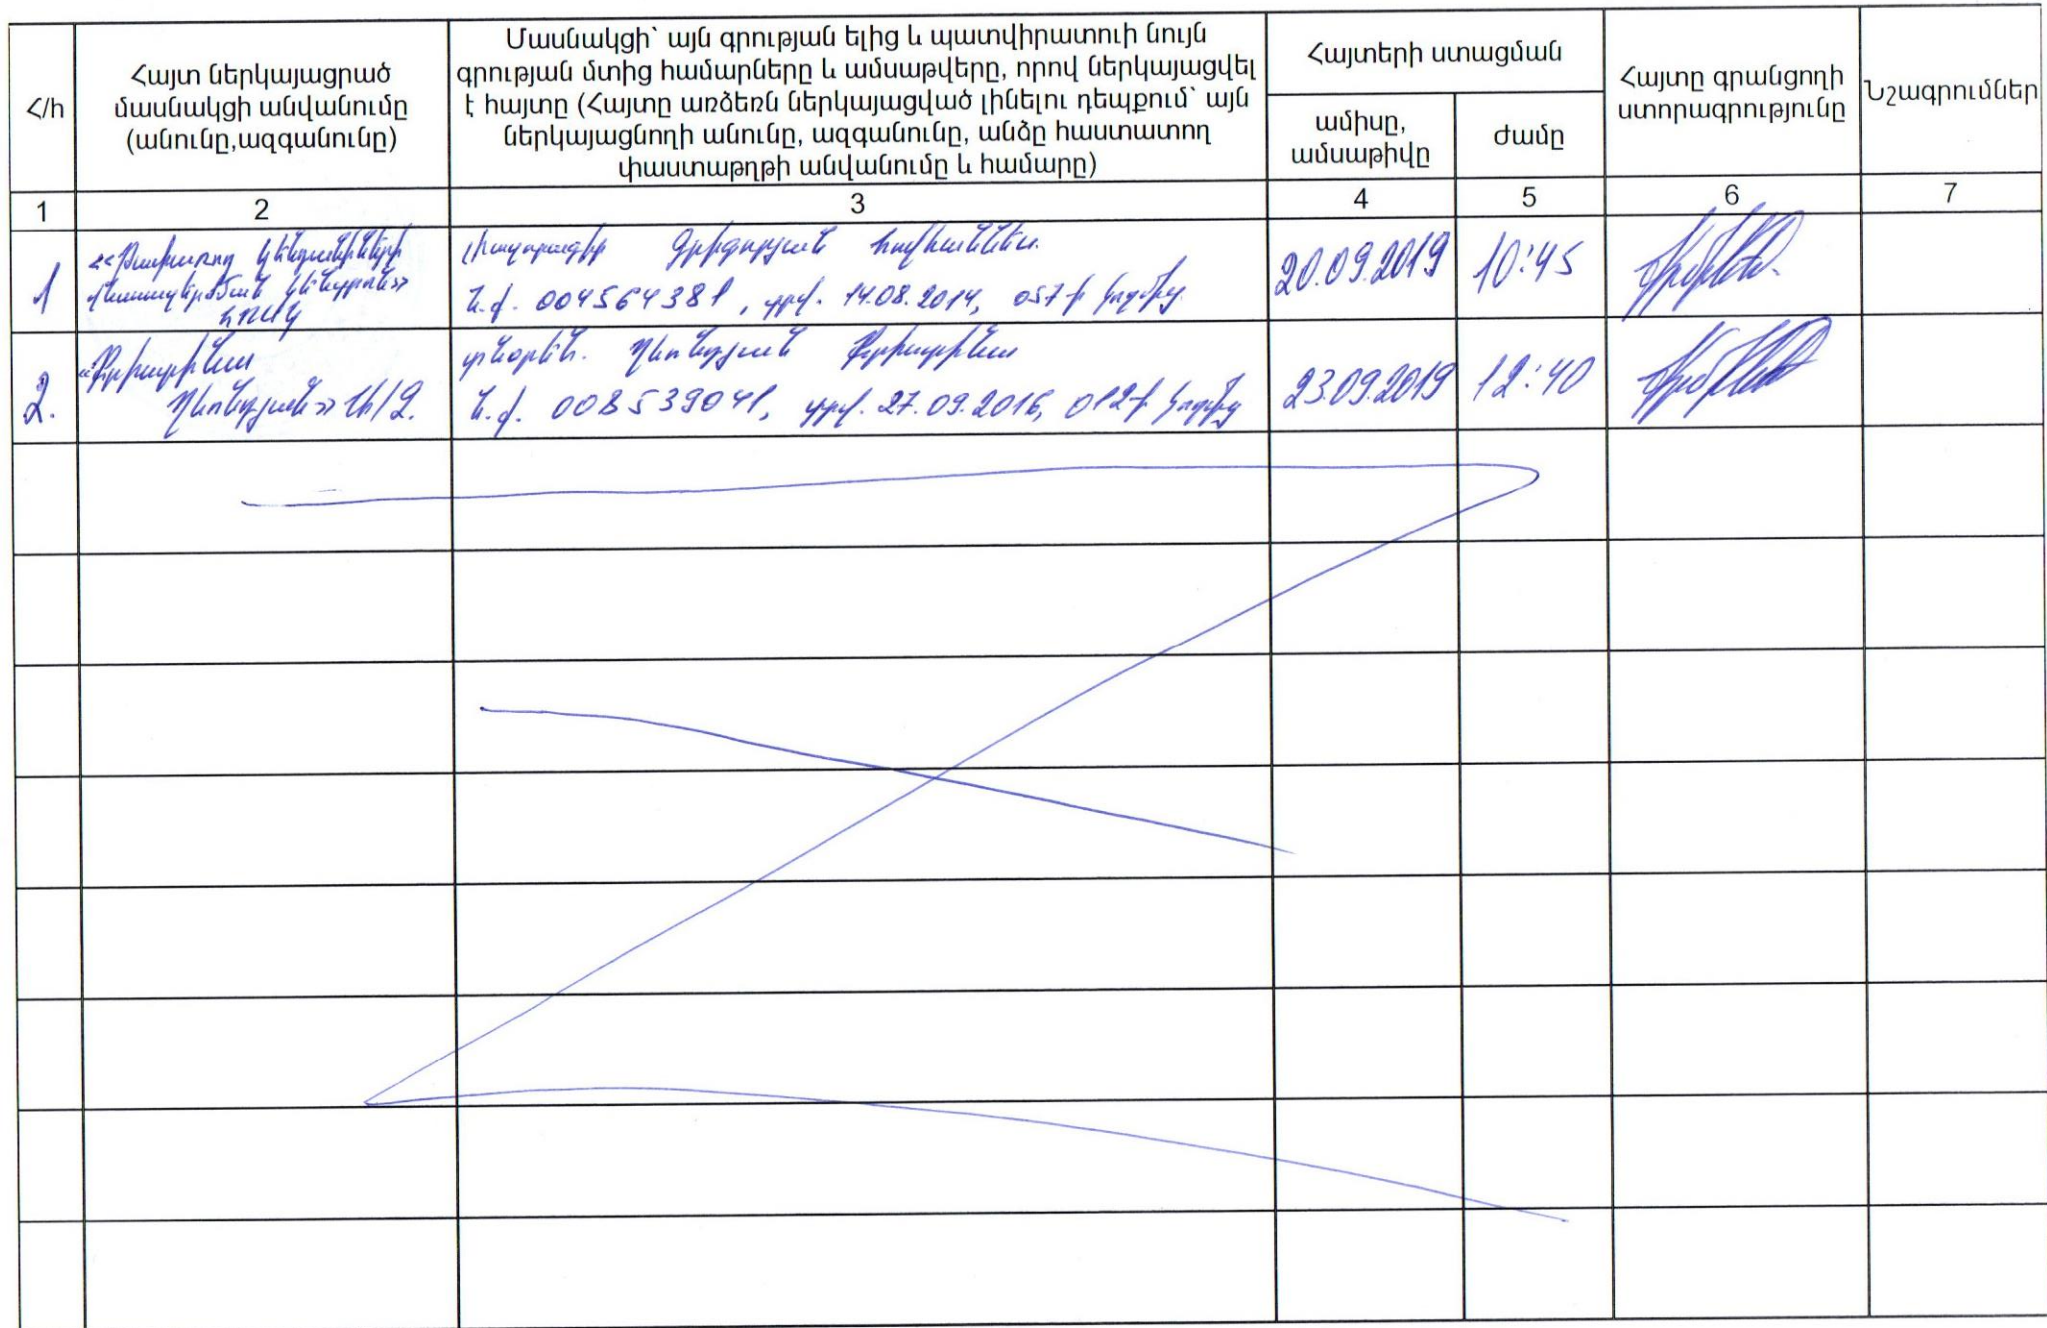 Հ/հ
Հայտ ներկայացրած
մասնակցի անվանումը
(անունը,ազգանունը)
Մասնակցի` այն գրության ելից և պատվիրատուի նույն
գրության մտից համարները և ամսաթվերը, որով ներկայացվել
է հայտը (Հայտը առձեռն ներկայացված լինելու դեպքում` այն
ներկայացնողի անունը, ազգանունը, անձը հաստատող
փաստաթղթի անվանումը և համարը)
Հայտերի ստացման
ամիսը,
ամսաթիվը
ժամը
Հայտը գրանցողի
ստորագրությունը
Նշագրումներ
1 2 3 4 5 6 7
1
<<Թափառող կենդանիների
վնասազերծման կենտրոն>>
ՀՈԱԿ
լիազորագիր Գրիգորյան Հովհաննես
ն.ք. 004564381, տրվ. 14.08.2014, 057-ի կողմից
20.09.2019
10:45
2.
«Քրիստինա
Ղևոնդյան» Ա/Ձ.
տնօրեն. Ղևոնդյան Քրիստինա
ն.ք. 008539041, տրվ. 27.09.2016, 012-ի կողմից
23.09.2019
12:40